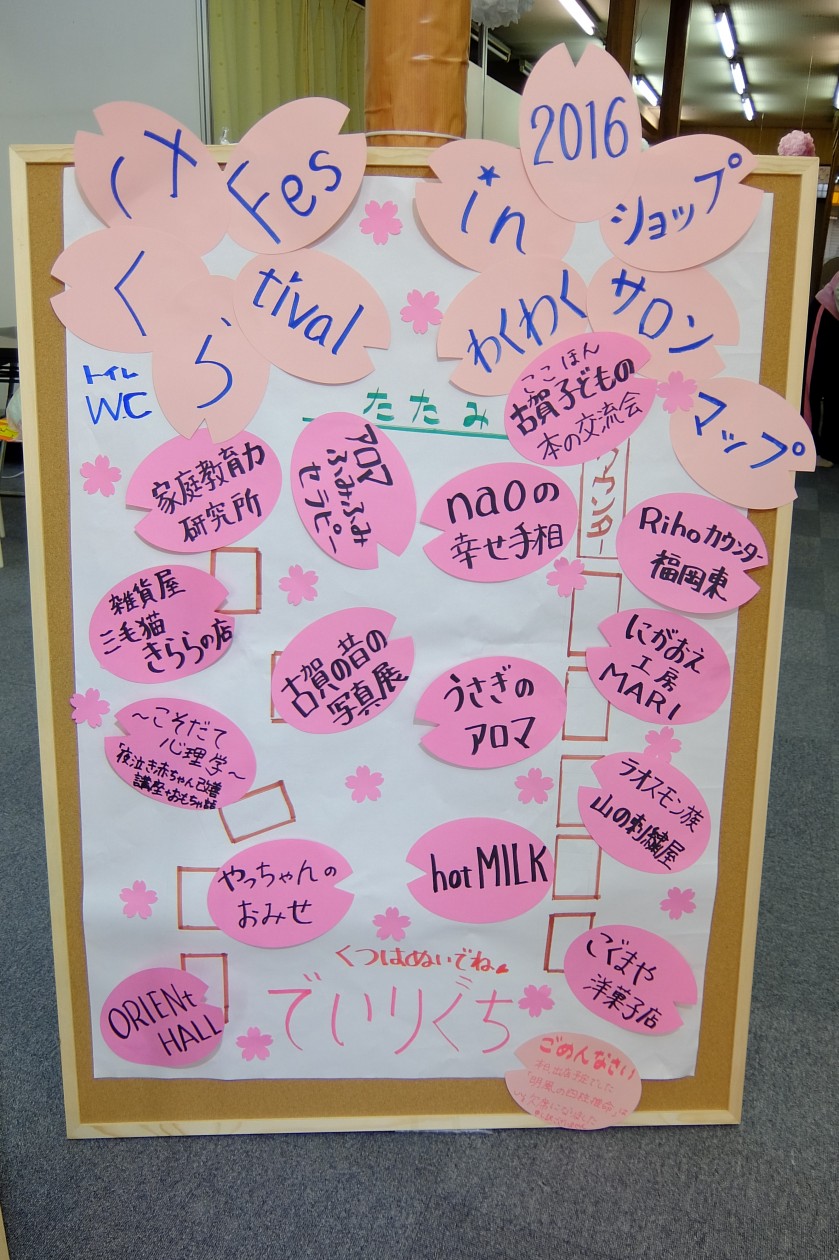 イメ
Fes
く
tival
ら
in
2016
ショップ
わくわく
サロン
マップ
トイレ
W.C
たたみ
ここ ほん
古賀子どもの
本の交流会
カウンター
家庭教育力
研究所
アロマ
ふみふみ
セラピー
naoの
幸せ手相
Rihoカウンター
福岡東
雑貨屋
三毛猫
きららの店
古賀の昔の
写真展
うさぎの
アロマ
にがおえ
工房
MARI
〜こそだて
心理学〜
「夜泣き赤ちゃん改善
講座・おもちゃ
ラオスモン族
山の刺繍屋
やっちゃんの
おみせ
hot MILK
こぐまや
洋菓子店
ORIENt
HALL
くつはぬいでね
でいりぐち
ごめんなさい
欠席になりました